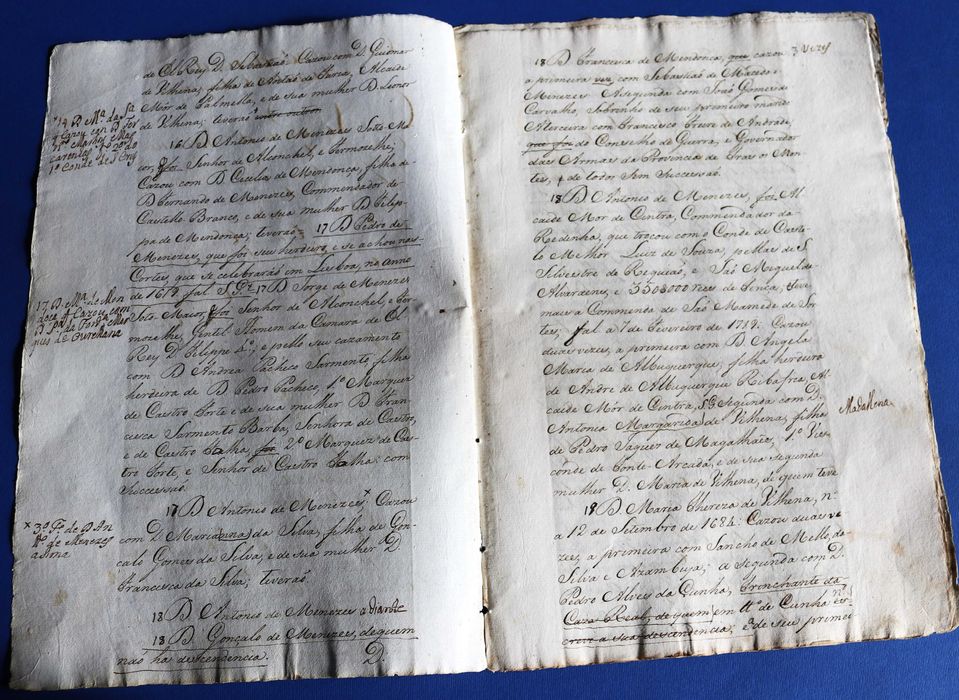 de El Rey D. Sebastiaõ Cazou com D. Guiomar
de Vilhena, filha de Antaõ de Faria, Alcaide
Mór de Palmella, e de sua mulher D. Leonor
de Vilhena; teveraõ
16 D. Antonio de Menezes Soto Ma
ior, foi Senhor de Alconchel, e Fermozelhe;
Cazou com D. Cecilia de Mendonça, filha de
D. Fernando de Menezes, Commendador de
Castello Branco, e de sua mulher D. Felip-
pa de Mendonca; teveraõ 17 D. Pedro de
Menezes, que foi seu herdeiro, e se achou nas
Cortes, que se celebraraõ em Lisboa, no anno
de 1619 fal. S. G. 17 D. Jorge de Menezes
Soto Maior, foi Senhor de Alconchel, e Fer-
mozelhe, Gentil Homem da Camara de El
Rey D. Filippe 4º, e pello seu cazamento
com D. Andrea Pacheco Sarmento, filha
herdeira de D. Pedro Pacheco, 1º Marquez
de Castro Forte, e de sua mulher D. Fran-
cisca Sarmento Barba, Senhora de Castro,
e de Castro Falha, foi 2º Marquez de Cas-
tro Forte, e Senhor de Castro Falha: com
Successaõ.
17 D. Antonio de Menezes x Cazou
com D. Mariana da Silva, filha de Gon-
calo Gomes da Silva, e de sua mulher D.
Francisca da Silva; teveraõ
18 D. Antonio de Menezes adiante
18 D. Gonçalo de Menezes, de quem
naõ ha descendencia.
D.
17 D. Mª de Men
doca q Cazou com
quis de Ourelhana
x 3º Fº de D. An
tº de Menezes
asima
18 D. Francisca de Mendonca, que cazou 3 vezes
a primeira vez, com Sebastiaõ de Macedo
Menezes. A segunda com Joaõ Gomes de
Carvalho, Sobrinho de seu primeiro marido
A terceira com Francisco Freire de Andrade,
que foi do Conselho de Guerra, e Governador
das Armas da Provincia de Tras os Mon-
tes, e de todos Sem Successaõ.
18 D. Antonio de Menezes, foi Al-
caide Mor de Cintra, Commendador da
Redinha, que trocou com o Conde de Caste-
lo Melhor Luiz de Souza, pellas de S.
Silvestre de Requiaõ, e Saõ Miguel de
Alvaraens, e 330$000 reis de Tença; teve
mais a Commenda de Saõ Mamede de Sor-
tes, fal. a 7 de Fevereiro de 1719. Cazou
duas vezes, a primeira com D. Angela
Maria de Albuquerque, filha herdeira
de Andre de Albuquerque Ribafria, Al-
caide Mór de Cintra, S.G. Segunda com D.
Antonia Margarida de Vilhena, filha
de Pedro Jaques de Magalhaẽs, 1º Vis-
conde de Fonte Arcada, e de sua segunda
mulher D. Maria de Vilhena, de quem teve
19 D. Maria Thereza de Vilhena, n.
a 12 de Setembro de 1684: Cazou duas ve
zes, a primeira com Sancho de Mello, da
Silva e Azambuja; a segunda com D.
Pedro Alves da Cunha, Trinchante da
Caza Real, de quem, em ttº de Cunhas nº
a sua descendencia; e de seu prime
Madallena